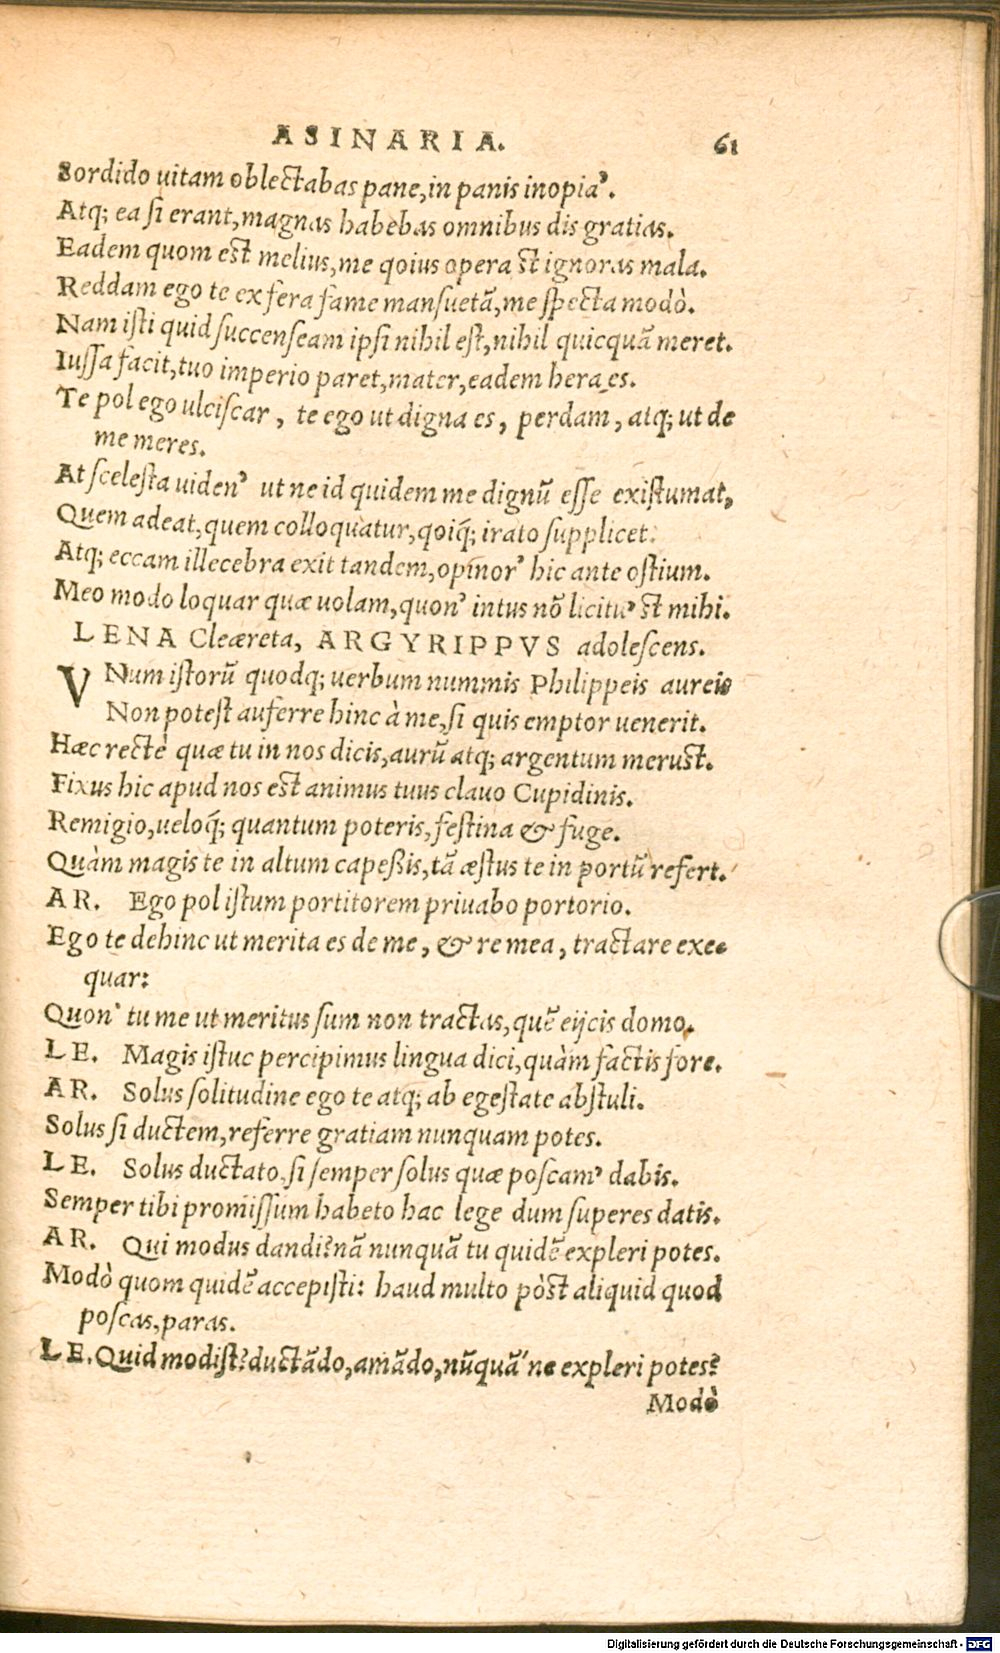 ASINARIA. 61
Sordido uitam oblectabas pane, in panis inopia'.
Atq; ea si erant, magnas habebas omnibus dis gratias.
Eadem quom est melius, me qoius opera st ignoras mala.
Reddam ego te ex fera fame mansuetã, me specta modò.
Nam isti quid succenseam ipsi nihil est, nihil quicquã meret.
Iussa facit, tuo imperio paret, mater, eadem hera es.
Te pol ego ulciscar, te ego ut digna es, perdam, atq; ut de
me meres.
At scelesta uiden' ut ne id quidem me dignũ esse existumat,
Quem adeat, quem colloquatur, qoiq̃; irato supplicet.
Atq; eccam illecebra exit tandem, opinor' hic ante ostium.
Meo modo loquar quæ uolam, quon' intus nõ licitu' st mihi.
LENA Cleæreta, ARGYRIPPVS adolescens.
VNum istorũ quodq; uerbum nummis Philippeis aureis
Non potest auferre hinc à me, si quis emptor uenerit.
Hæc rectè quæ tu in nos dicis, aurũ atq; argentum merust.
Fixus hic apud nos est animus tuus clauo Cupidinis.
Remigio, ueloq̃; quantum poteris, festina & fuge.
Quàm magis te in altum capeßis, tã æstus te in portũ refert.
AR. Ego pol istum portitorem priuabo portorio.
Ego te dehinc ut merita es de me, & re mea, tractare exe-
quar:
Quon' tu me ut meritus sum non tractas, quẽ eijcis domo.
LE. Magis istuc percipimus lingua dici, quàm factis fore.
AR. Solus solitudine ego te atq; ab egestate abstuli.
Solus si ductem, referre gratiam nunquam potes.
LE. Solus ductato, si semper solus quæ poscam' dabis.
Semper tibi promissum habeto hac lege dum superes datis.
AR. Qui modus dandi? nã nunquã tu quidẽ expleri potes.
Modò quom quidẽ accepisti: haud multo pòst aliquid quod
poscas, paras.
LE. Quid modist? ductãdo, amãdo, nũquã' ne expleri potes?
Modò
Digitalisierung gefördert durch die Deutsche Forschungsgemeinschaft - DFG